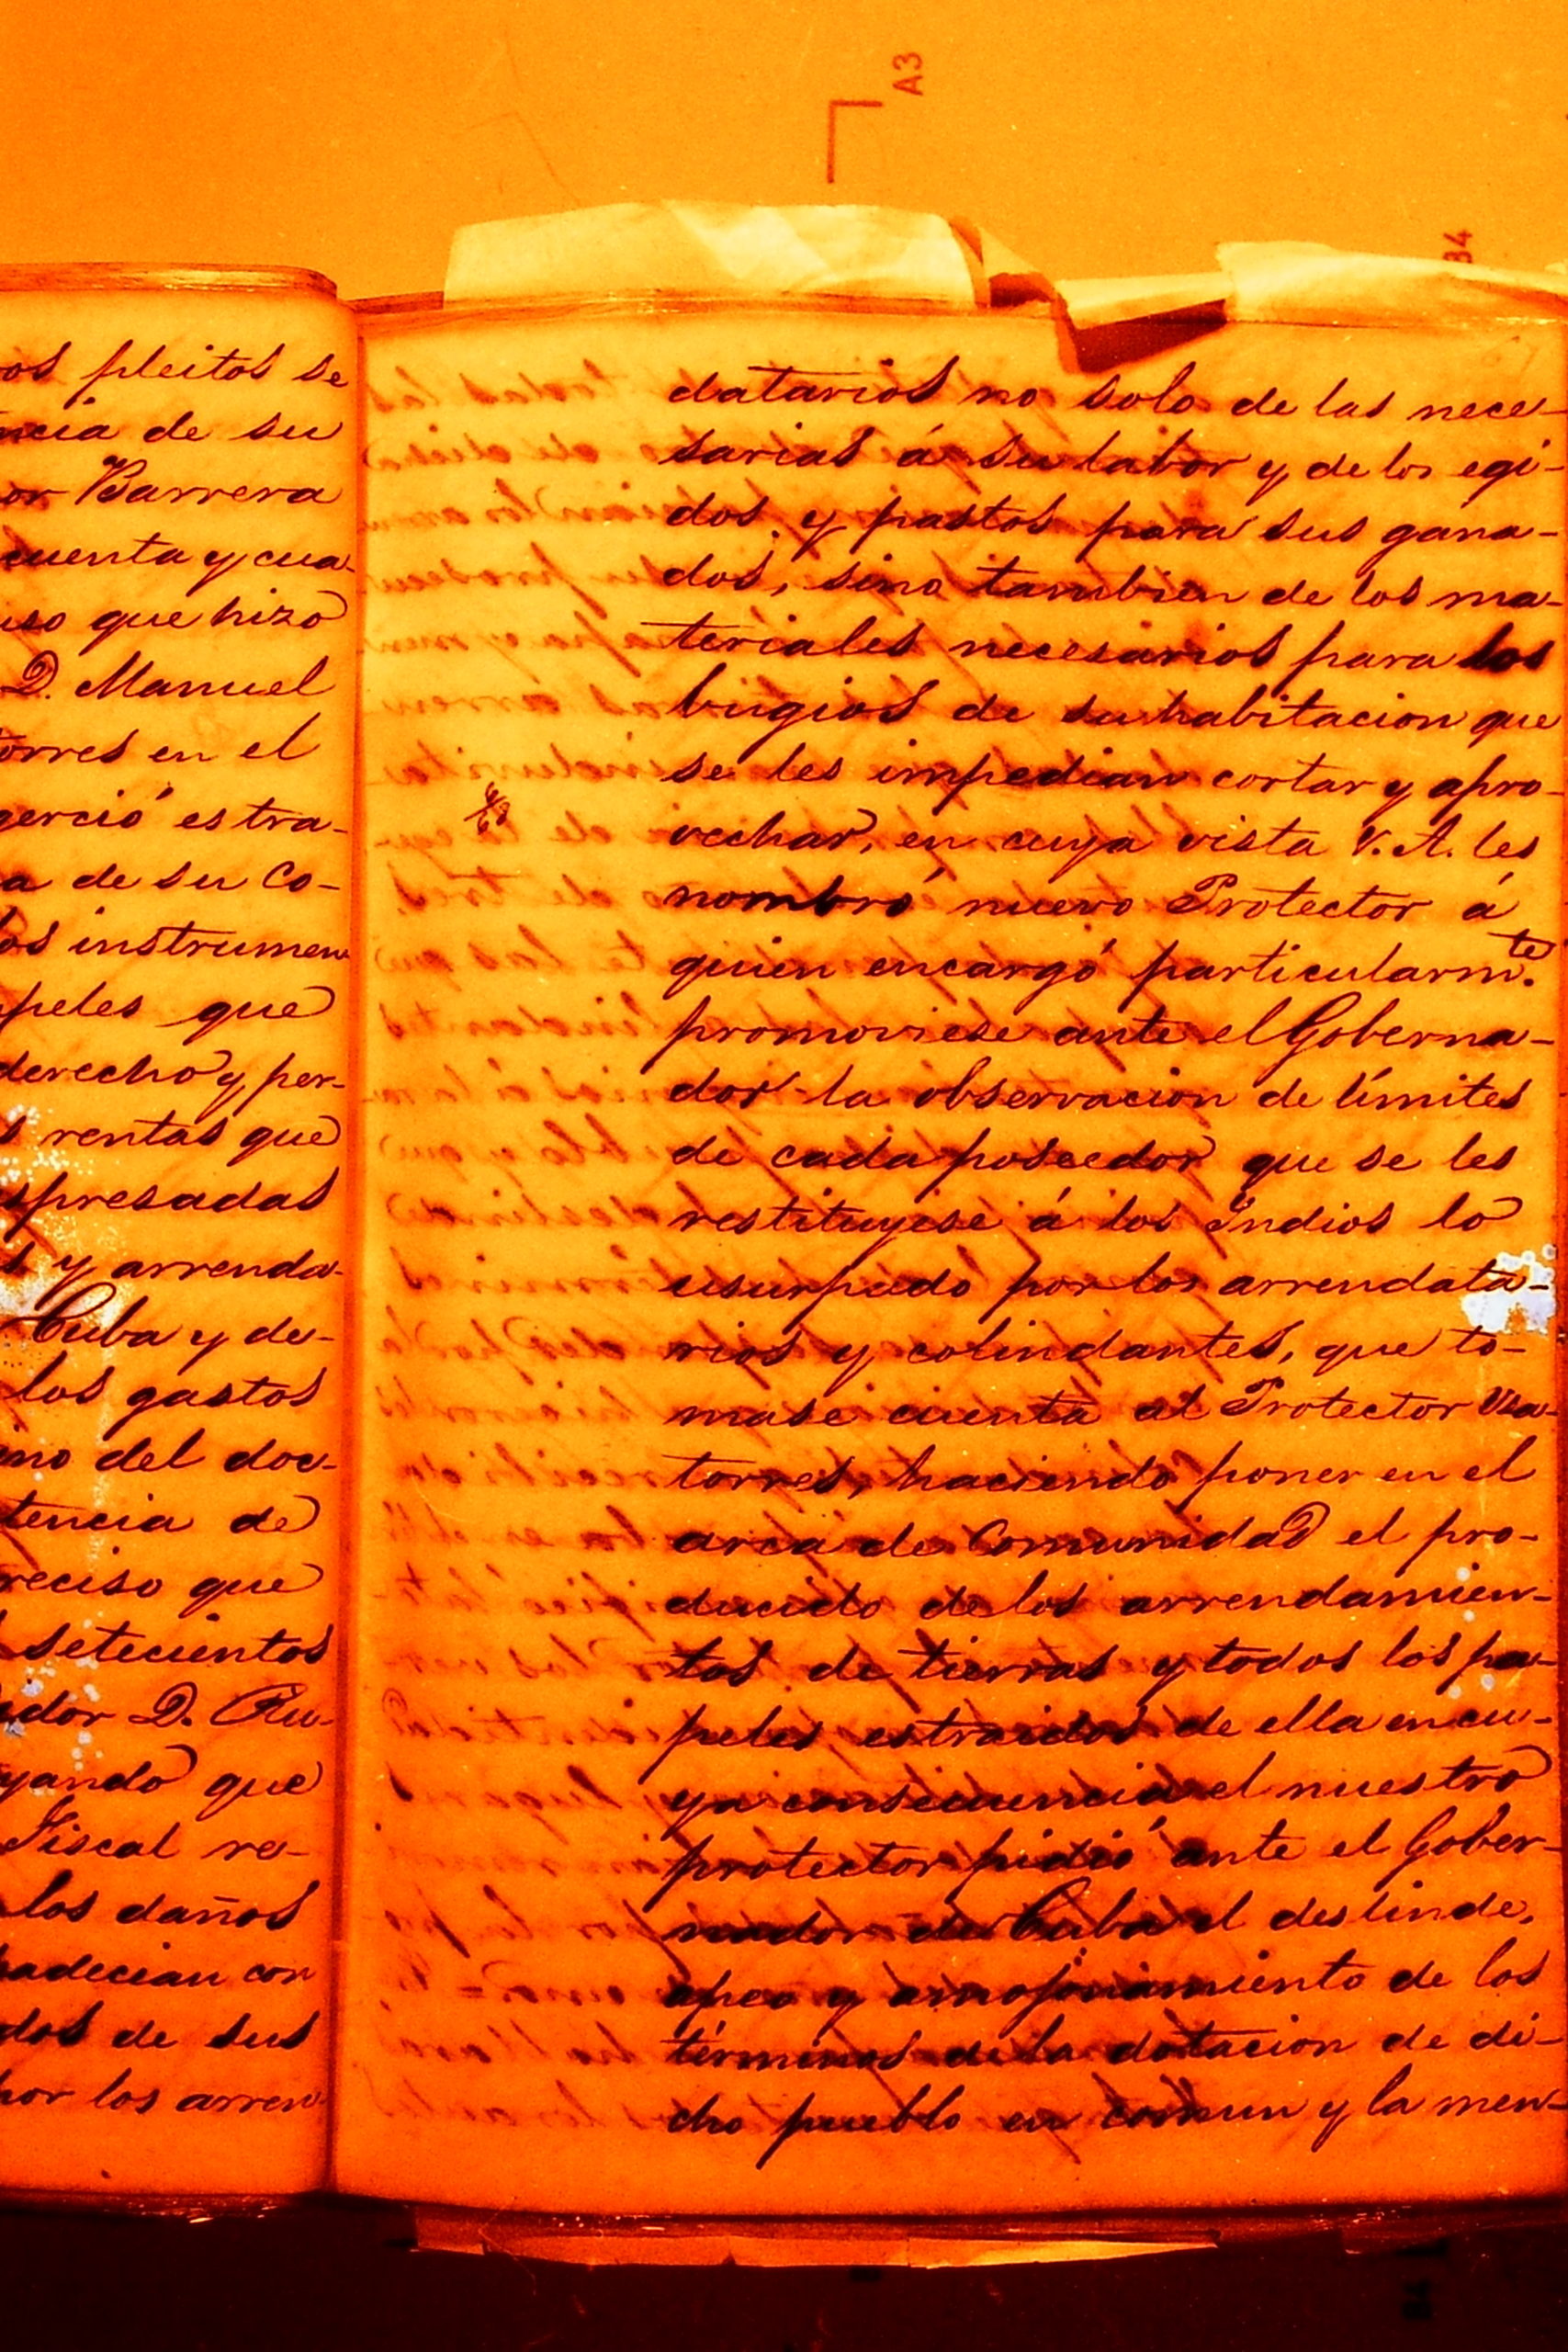 A3
B4
os pleitos se
ncia de su
or Barrera
cuenta y cua-
uso que hizo
D. Manuel
torres en el
gerció estra-
a de su co-
los instrumen
peles que
derecho y per-
s rentas que
spresadas
s y arrenda-
Cuba y de-
los gastos
ino del doc-
tencia de
reciso que
setecientos
ador D. Ru-
yando que
Fiscal re-
los daños
padecian con
dos de sus
por los arren-
datarios no solo de las nece-
sarias á su labor y de los egi-
dos y pastos para sus gana-
dos, sino tambien de los ma-
teriales necesarios para los
bugios de su habitacion que
se les impedian cortar y apro-
vechar, en cuya vista V. A. les
nombró nuevo Protector á
quien encargó particularmte.
promoviese ante el Goberna-
dor la observacion de límites
de cada poseedor que se les
restituyese á los Indios lo
usurpado por los arrendata-
rios y colindantes, que to-
mase cuenta al Protector Usa-
torres, haciendo poner en el
arca de Comunidad el pro-
ducido de los arrendamien-
tos de tierras y todos los pa-
peles estraidos de ella en cu-
ya consecuencia el nuestro
protector pidió ante el Gober-
nador de Cuba el deslinde,
apeo y amojonamiento de los
términos de la dotacion de di-
cho pueblo en comun y la men-